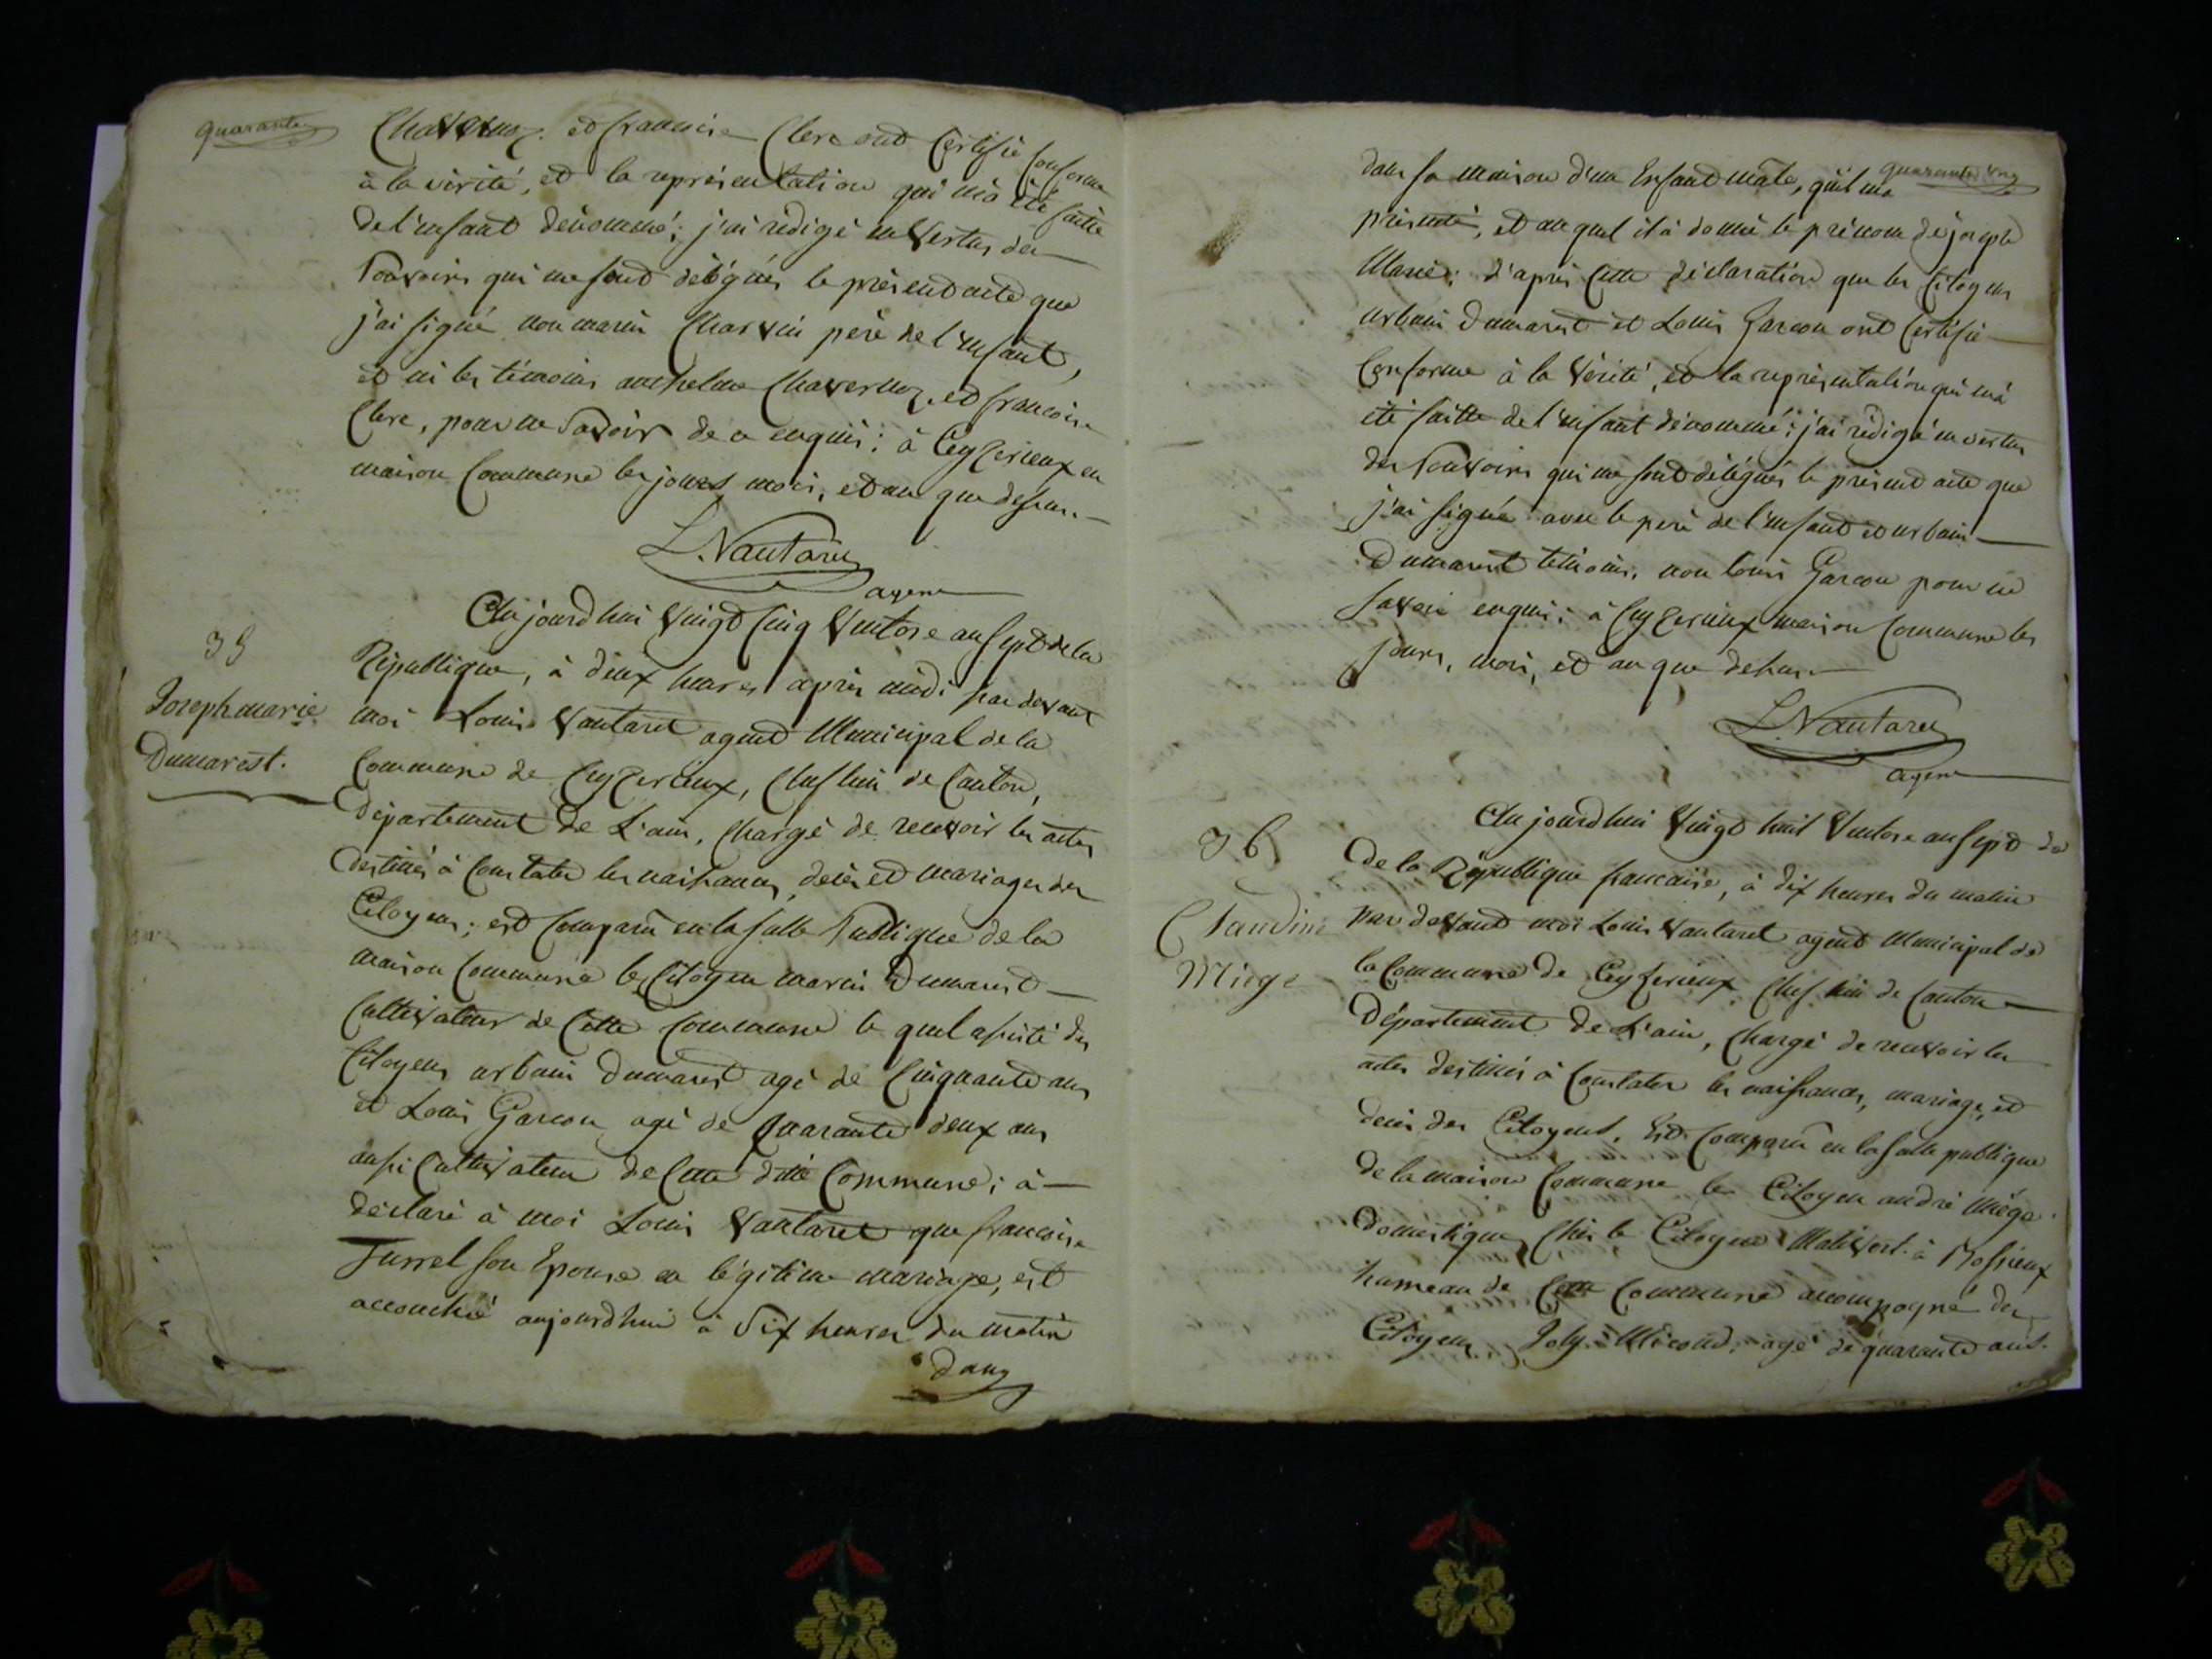 quarante
Chavernoz. et francoise Clerc ont Certifié Conforme
à la vérité, et la représentation qui m'a été faitte
de l'enfant dénommé; j'ai rédigé en Vertus des
Pouvoirs qui me sont délégués le présent acte que
j'ai signé non marin Charvin père de l'enfant,
et ni les témoins anthelme Chavernoz, et francoise
Clerc, pour ne Savoir de ce enquis; à Ceyzerieux en
maison Commune les jours mois, et an que dessus.
L. Vautaret
agent
35
Joseph marie
Dumarest.
Aujourdhui Vingt Cinq Ventose an Sept de la
République, à deux heures après midi par devant
moi Louis Vautaret agent Municipal de la
Commune de Ceyzerieux, Chef lieu de Canton,
département de L'ain, Chargé de recevoir les actes
destinés à Constater les naissances, décès et mariages des
Citoyens; est Comparû en la salle Publique de la
maison Commune le Citoyen marin Dumarest
Cultivateur de Cette Commune le quel assisté des
Citoyens urbain Dumarest agé de Cinquante ans
et Louis Garcon agé de quarante deux ans
aussi Cultivateur de Cette dite Commune; à
déclaré à moi Louis Vautaret que francoise
Jurrel son Epouse en légitime mariage, est
accouchée aujourdhui à Six heures du matin
dans
quarante un
dans sa maison d'un Enfant mâle, qu'il m'a
présenté, et au quel il à donné le prénom de joseph
Marie; d'après Cette déclaration que les Citoyens
urbain Dumarest et Louis Garcon ont Certifié
Conforme à la Vérité, et la représentation qui m'a
été faitte de l'enfant dénommé; j'ai rédigé en vertus
des Pouvoirs qui me sont délégués le présent acte que
j'ai signé avec le père de l'enfant et urbain
Dumarest témoins, non louis Garcon pour ne
Savoir enquis; à Ceyzerieux maison Commune les
jours, mois, et an que dessus
L. Vautaret
agent
36
Claudine
Miege
Aujourdhui Vingt huit Ventose an Sept de
de la République francaise, à dix heures du matin
par devant moi Louis Vautaret agent Municipal de
la Commune de Ceyzerieux, Chef lieu de Canton
Département de L'ain, Chargé de recevoir les
actes destinés à Constater les naissances, mariage, et
decès des Citoyens, Est Comparû en la salle publique
de la maison Commune le Citoyen andré Miège
domestique Chés le Citoyen Malivert à Rossieux
hameau de Cette Commune accompagné des
Citoyens Joly Micoud, agé de quarante ans.